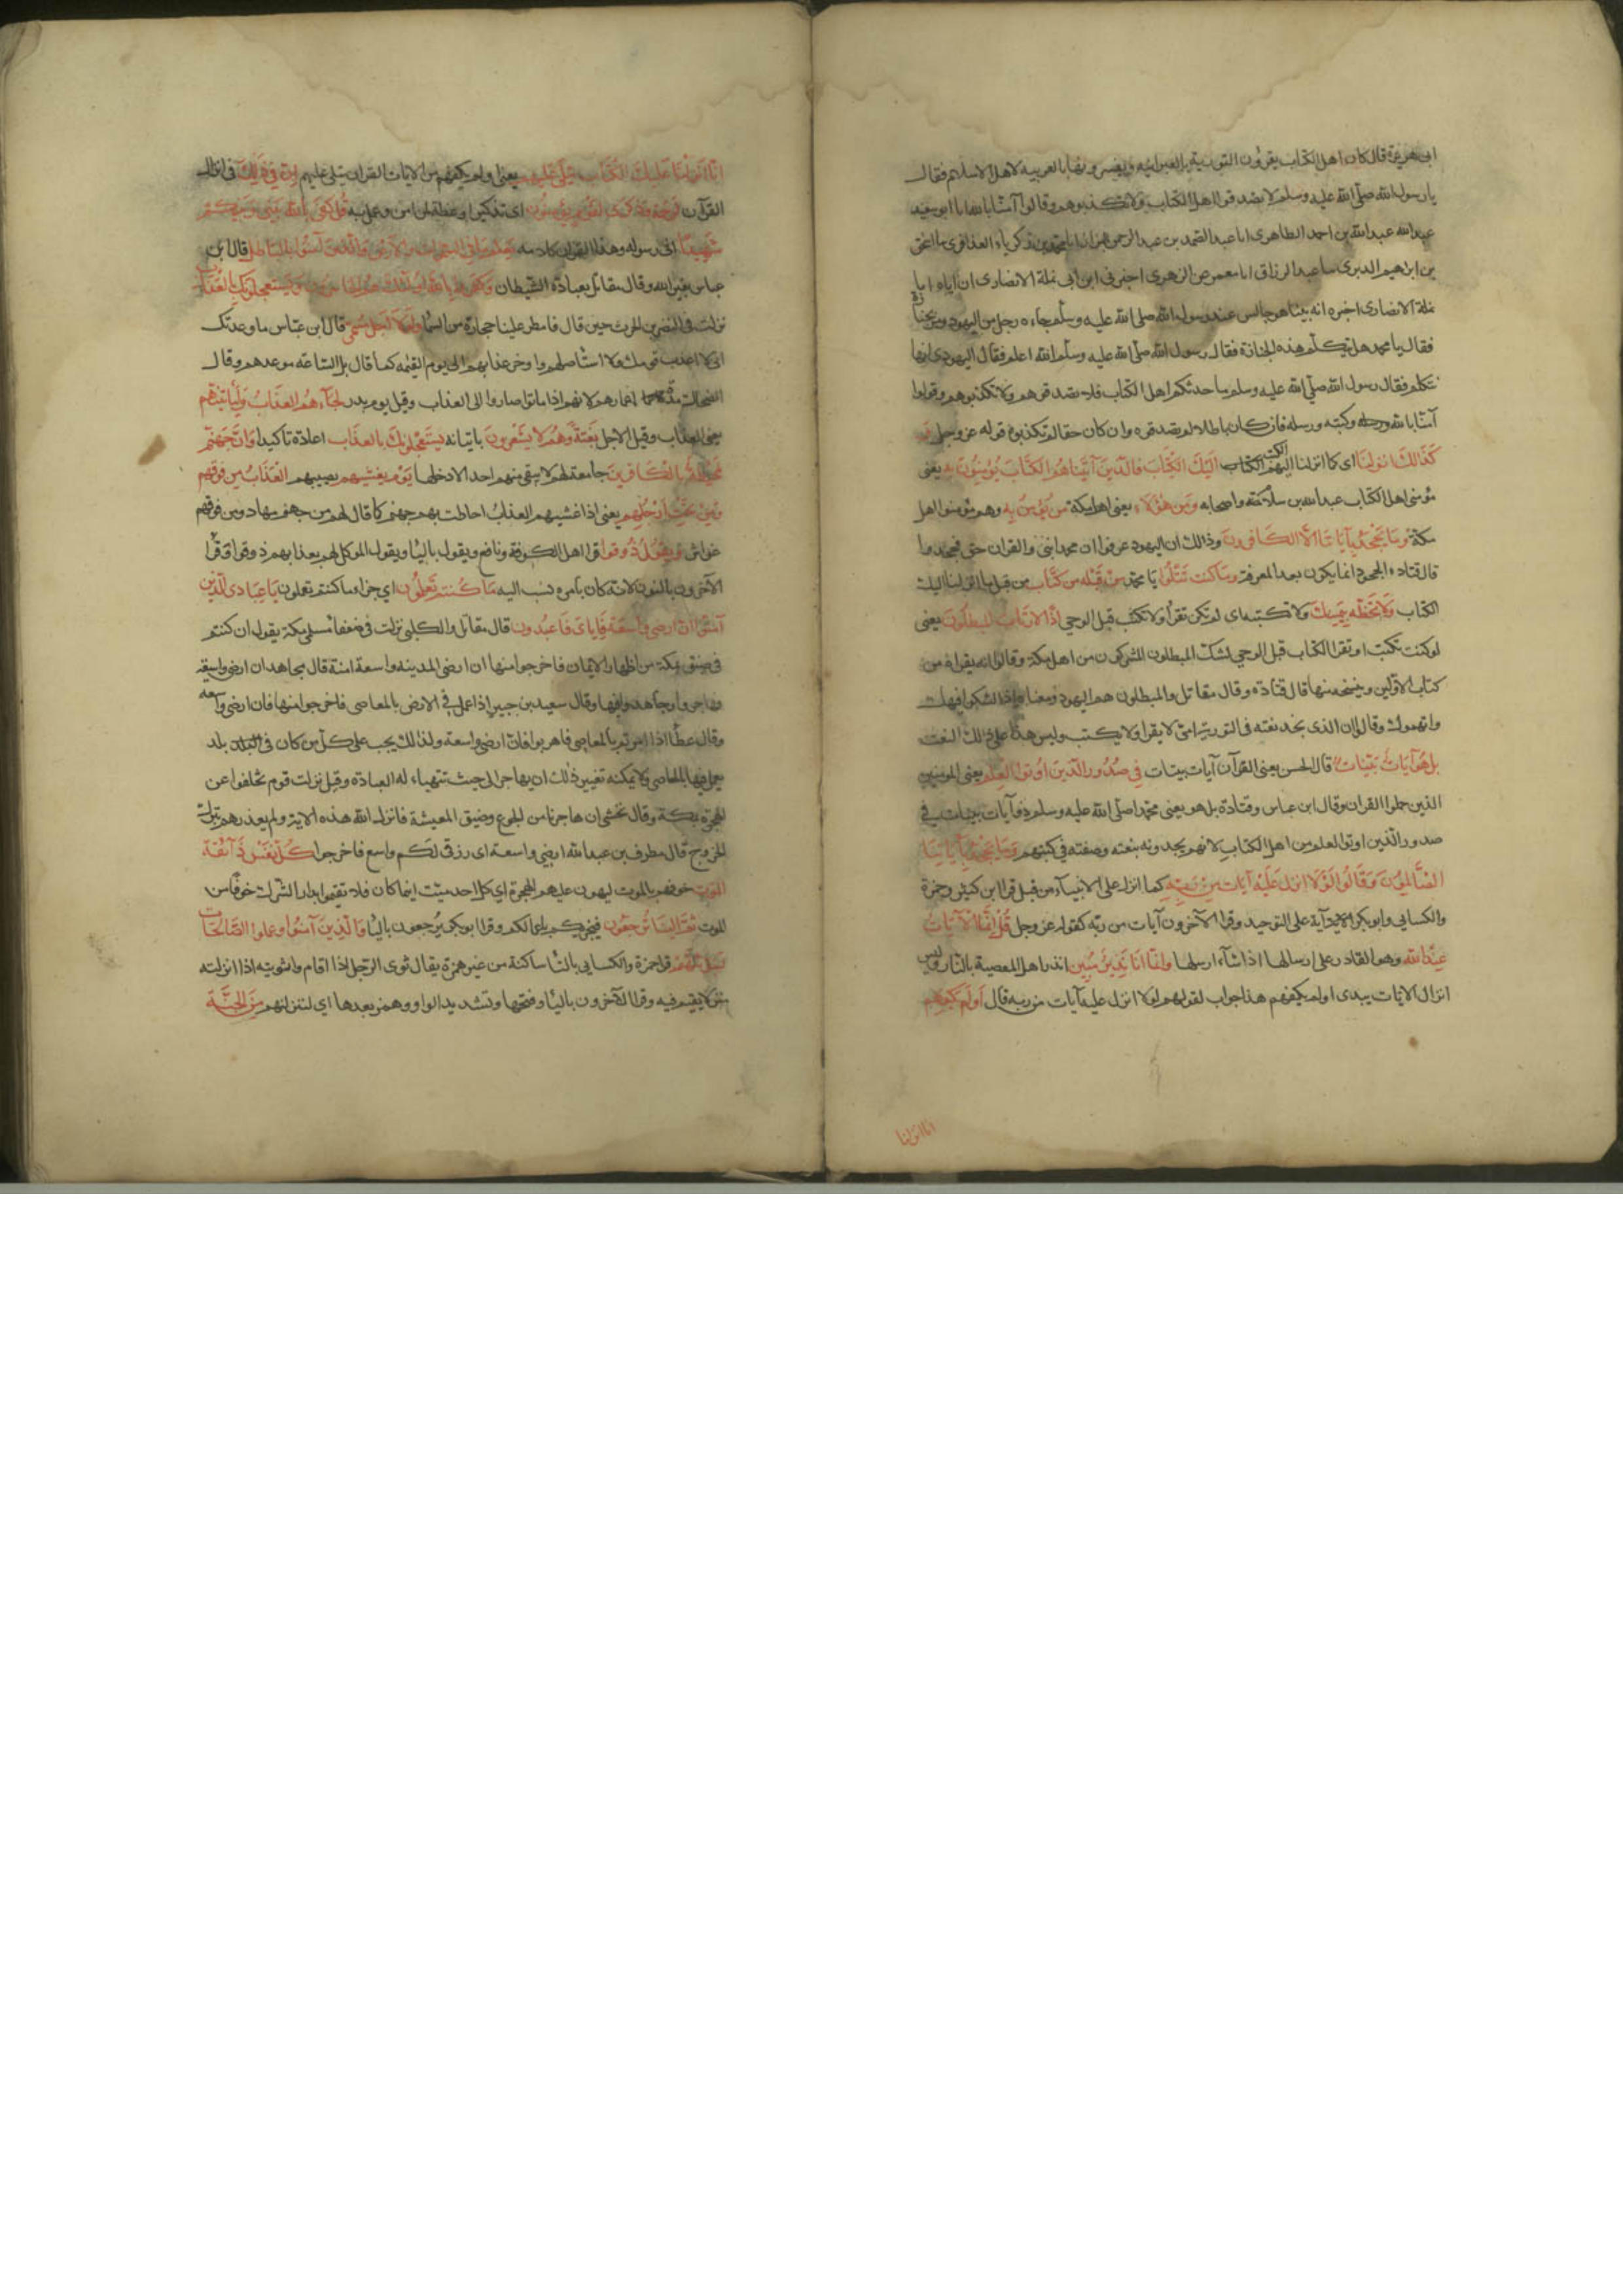 ابى هريرة قال كان اهل الكتاب يقرؤن التورية بالعبرانية ويفسرونها بالعربيه لاهل الاسلام فقال
يا رسول الله صلى الله عليه وسلم لا تصدقوا اهل الكتاب ولا تكذبوهم وقالوا آمنا بالله انا ابو سعيد
عبد الله بن احمد الطاهرى انا عبد الصمد بن عبد الرحمن البزاز انا محمد بن زكرياء العذافرى انا اسحق
بن ابراهيم الدبرى سا عبد الرزاق انا معمر عن الزهرى اخبرنى ابن ابى نملة الانصارى ان اباه ابا
نملة الانصارى اخبره انه بينا هو جالس عند رسول الله صلى الله عليه وسلم جاءه رجل من اليهود ومر بجنازة
فقال يا محمد هل تتكلم هذه الجنازة فقال رسول الله صلى الله عليه وسلم الله اعلم فقال اليهودى انها
تتكلم فقال رسول الله صلى الله عليه وسلم ما حدثكم اهل الكتاب فلا تصدقوهم ولا تكذبوهم وقولوا
آمنا بالله وكتبه ورسله فان كان باطلا لم تصدقوه وان كان حقا لم تكذبوه قوله عز وجل
كذالك انزلنا اى كما انزلنا اليهم الكتب اليك الكتاب فالذين آتيناهم الكتاب يؤمنون به يعنى
مؤمنى اهل الكتاب عبد الله بن سلام واصحابه ومن هؤلاء يعنى اهل مكة من يؤمن به وهم مؤمنوا اهل
مكة وما يجحد بآياتنا الا الكافرون وذالك ان اليهود عرفوا ان محمدا نبى والقران حق فجحدوا
قال قتاده الجحود انما يكون بعد المعرفة وما كنت تتلوا يا محمد من قبله من كتاب من قبل ما انزلنا اليك
الكتاب ولا تخطه بيمينك ولا تكتبه اى لم تكن تقرأ ولا تكتب قبل الوحي اذا لارتاب المبطلون يعنى
لو كنت تكتب او تقرا الكتاب قبل الوحي لشك المبطلون المشركون من اهل مكة وقالوا انه يقراه من
كتاب الاولين وينسخه منها قال قتادة وقال مقاتل والمبطلون هم اليهود ومعناه اذا لشكوا فيك
واتهموك وقالوا ان الذى نجد نعته فى التورية امى لا يقرا ولا يكتب وليس هذا على ذلك النعت
بل هو آيات بينات قال الحسن يعنى القرآن آيات بينات فى صدور الذين اوتوا العلم يعنى المومنين
الذين حملوا القران وقال ابن عباس وقتادة بل هو يعنى محمدا صلى الله عليه وسلم ذو آيات بينات فى
صدور الذين اوتوا العلم من اهل الكتاب لانهم يجدونه بنعته وصفته فى كتبهم وما يجحد بآياتنا
الا الظالمون وقالوا لولا انزل عليه آيات من ربه كما انزل على الانبياء من قبل قرا ابن كثير وحمزة
والكسايى وابو بكر آية على التوحيد وقرا الآخرون آيات من ربه كقوله عز وجل قل انما الآيات
عند الله وهو القادر على ارسالها اذا شآء ارسلها وانما انا نذير مبين انذر اهل المعصية بالنار وليس
انزال الايات بيدى اولم يكفهم هذا جواب لقولهم لولا انزل عليه آيات من ربه قال اولم يكفهم
انا انزلنا
انا انزلنا عليك الكتاب يتلى عليهم يعنى اولم يكفهم من الايات القران يتلى عليهم ان فى ذلك فى انزال
القرآن لرحمة وذكرى لقوم يؤمنون اى تذكيرا وعظة لمن امن وعمل به قل كفى بالله بينى وبينكم
شهيدا انى رسوله وهذا القران كلامه يعلم ما فى السموات والارض والذين آمنوا بالباطل قال ابن
عباس بغير الله وقال مقاتل بعبادة الشيطان وكفروا بالله اولئك هم الخاسرون ويستعجلونك بالعذاب
نزلت فى النضر بن الحرث حين قال فامطر علينا حجارة من السماء ولولا اجل مسمى قال ابن عباس ما وعدتك
انى لا اعذب قومك ولا استأصلهم واوخر عذابهم الى يوم القيمه كما قال بل الساعة موعدهم وقال
الضحاك مدة اعمارهم لانهم اذا ماتوا صاروا الى العذاب وقيل يوم بدر لجآءهم العذاب وليأتينهم
يعنى العذاب وقيل الاجل بغتة وهم لا يشعرون باتيانه يستعجلونك بالعذاب اعاده تاكيدا وان جهنم
لمحيطة بالكافرين جامعة لهم لا يبقى منهم احد الا دخلها يوم يغشيهم يصيبهم العذاب من فوقهم
ومن تحت ارجلهم يعنى اذا غشيهم العذاب احاطت بهم جهنم كما قال لهم من جهنم مهاد ومن فوقهم
غواش ويقول ذوقوا قرا اهل الكوفة ونافع ويقول باليا اى ويقول الموكل لهم بعذابهم ذوقوا وقرا
الآخرون بالنون لانه كان بامره نسب اليه ما كنتم تعملون اى جزا ما كنتم تعملون يا عبادى الذين
آمنوا ان ارضى واسعة فاياى فاعبدون قال مقاتل والكلبى نزلت فى ضعفآ مسلمى مكة يقول ان كنتم
فى ضيق بمكة من اظهار الايمان فاخرجوا منها ان ارضى المدينه واسعة امنة قال مجاهد ان ارضى واسعة
فهاجروا وجاهدوا فيها وقال سعيد بن جبير اذا عمل فى الارض بالمعاصى فاخرجوا منها فان ارضى واسعه
وقال عطا اذا امرتم بالمعاصى فاهربوا فان ارضى واسعة ولذالك يجب على كل من كان فى بلد
يعمل فيها بالمعاصى ولا يمكنه تغيير ذلك ان يهاجر الى حيث تتهياء له العبادة وقيل نزلت قوم تخلفوا عن
الهجرة بمكة وقال نخشى ان هاجرنا من الجوع وضيق المعيشة فانزل الله هذه الاية ولم يعذرهم بترك
الخروج قال مطرف بن عبد الله ارضى واسعة اى رزقى لكم واسع فاخرجوا كل نفس ذآئقة
الموت خوفهم بالموت ليهون عليهم الهجرة اى كل احد ميت اينما كان فلا تقيموا بدار الشرك خوفا من
الموت ثم الينا ترجعون فيجزيكم باعمالكم وقرا ابو بكر يرجعون باليا والذين آمنوا وعملوا الصالحات
لنبوئنهم قرا حمزة والكسايى بالثا ساكنة من غير همزة يقال ثوى الرجل اذا اقام واثويته اذا انزلته
منزلا يقيم فيه وقرا الآخرون باليا وفتحها وتشديد الواو وهمز بعدها اى لننزلنهم من الجنة